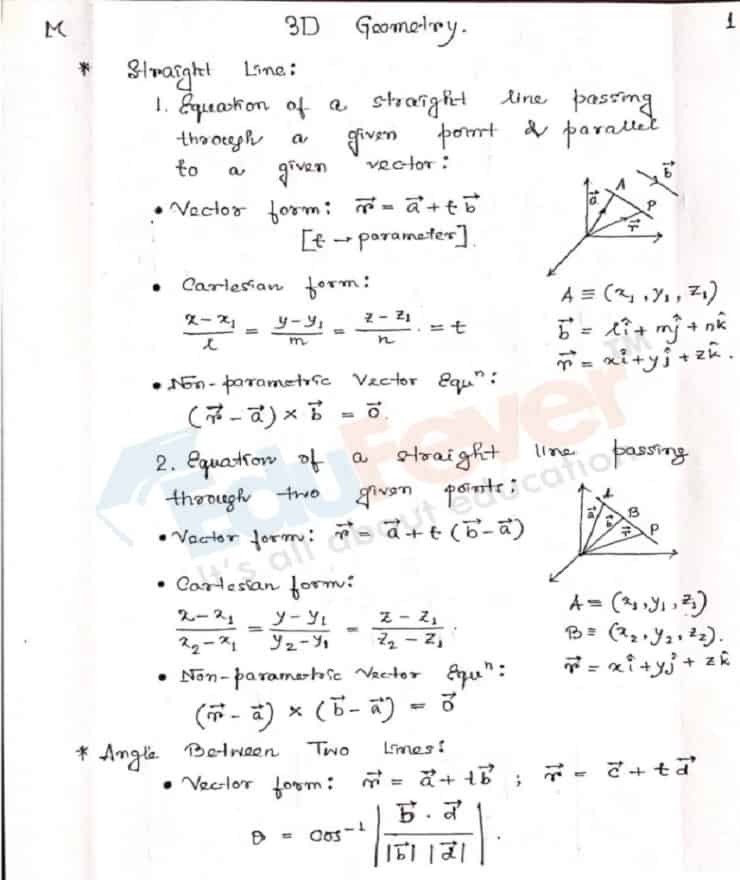 M 3D Geometry. 1
* Straight Line:
1. Equation of a straight line passing
through a given point & parallel
to a given vector:
• Vector form: r⃗ = a⃗ + t b⃗
[t → parameter].
a⃗ A b⃗ P r⃗
• Cartesian form:
(x - x₁)/l = (y - y₁)/m = (z - z₁)/n . = t
A ≡ (x₁, y₁, z₁)
b⃗ = lî + mĵ + nk̂
r⃗ = xî + yĵ + zk̂.
• Non-parametric Vector Equⁿ:
(r⃗ - a⃗) × b⃗ = 0⃗.
2. Equation of a straight line passing
through two given points:
• Vector form: r⃗ = a⃗ + t (b⃗ - a⃗)
a⃗ A b⃗ B r⃗ P
• Cartesian form:
(x - x₁)/(x₂ - x₁) = (y - y₁)/(y₂ - y₁) = (z - z₁)/(z₂ - z₁) .
A = (x₁, y₁, z₁)
B ≡ (x₂, y₂, z₂).
r⃗ = xî + yĵ + zk̂
• Non-parametric Vector Equⁿ:
(r⃗ - a⃗) × (b⃗ - a⃗) = 0⃗
* Angle Between Two Lines:
• Vector form: r⃗ = a⃗ + t b⃗ ; r⃗ = c⃗ + t d⃗
θ = cos⁻¹ |(b⃗ . d⃗)/(|b⃗| |d⃗|)| .
EduFever TM
It's all about education